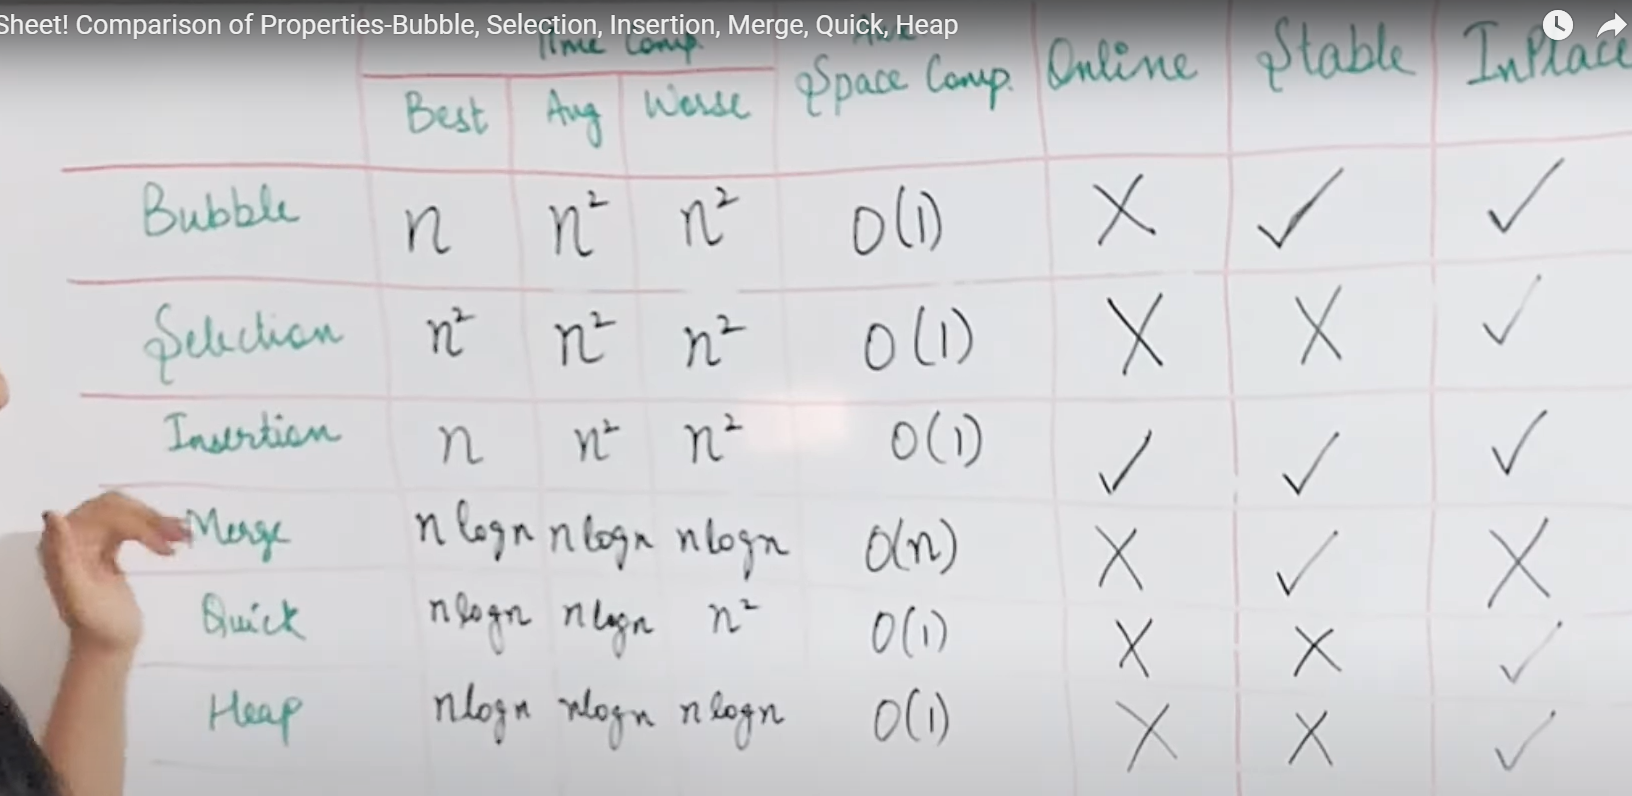 Sheet! Comparison of Properties-Bubble, Selection, Insertion, Merge, Quick, Heap
Time Comp. Space Comp. Online Stable InPlace
Best Avg Worse
Bubble n n² n² O(1) X ✓ ✓
Selection n² n² n² O(1) X X ✓
Insertion n n² n² O(1) ✓ ✓ ✓
Merge n logn n logn n logn O(n) X ✓ X
Quick n logn n logn n² O(1) X X ✓
Heap n logn n logn n logn O(1) X X ✓